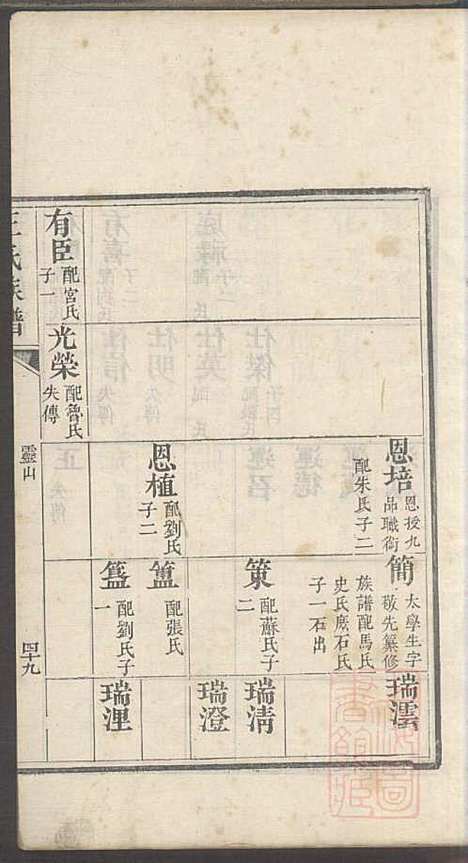 恩培
恩授九
品職銜
配朱氏子二
簡
太學生字
敬先纂修
族譜配馬氏
史氏庶石氏
子一石出
瑞澐
策
配蘇氏子
二
瑞清
瑞澄
恩植
配劉氏
子二
簠
配張氏
簋
配劉氏子
一
瑞浬
有臣
配宮氏
子一
光榮
配魯氏
失傳
王氏族譜
靈山
四十九